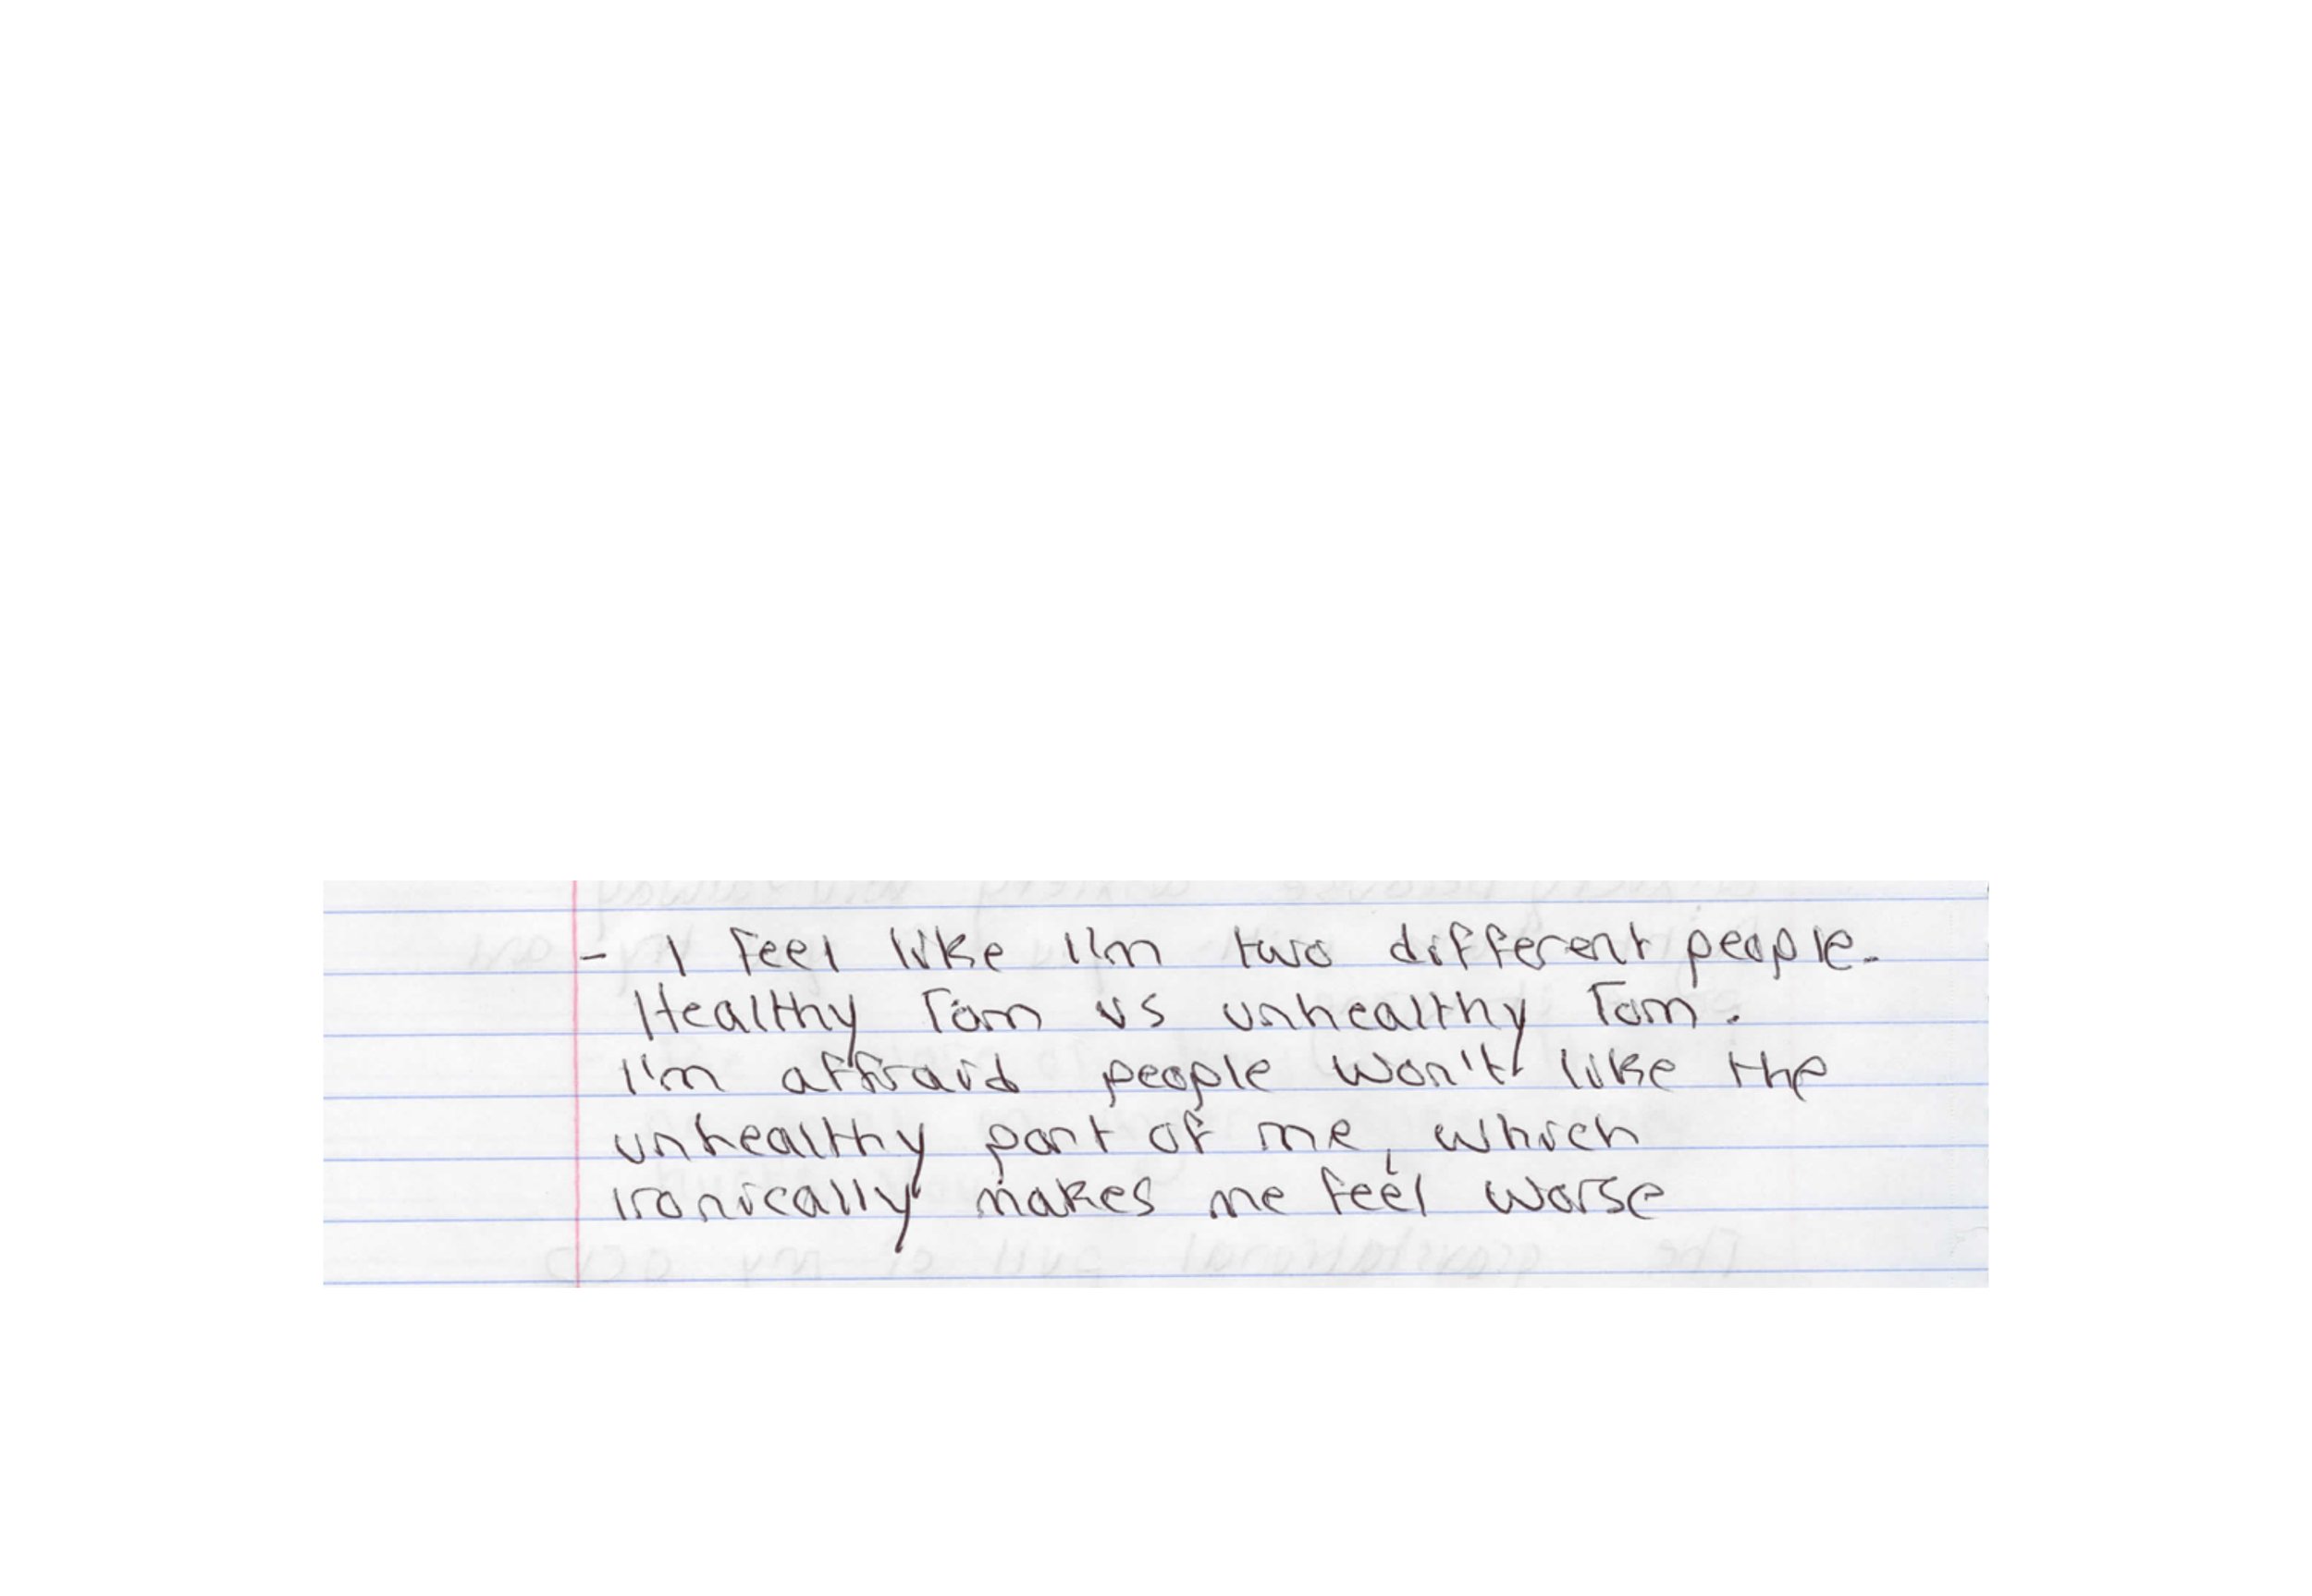 - I feel like I'm two different people.
Healthy Tom vs unhealthy Tom.
I'm affraid people won't like the
unhealthy part of me, which
ironically makes me feel worse